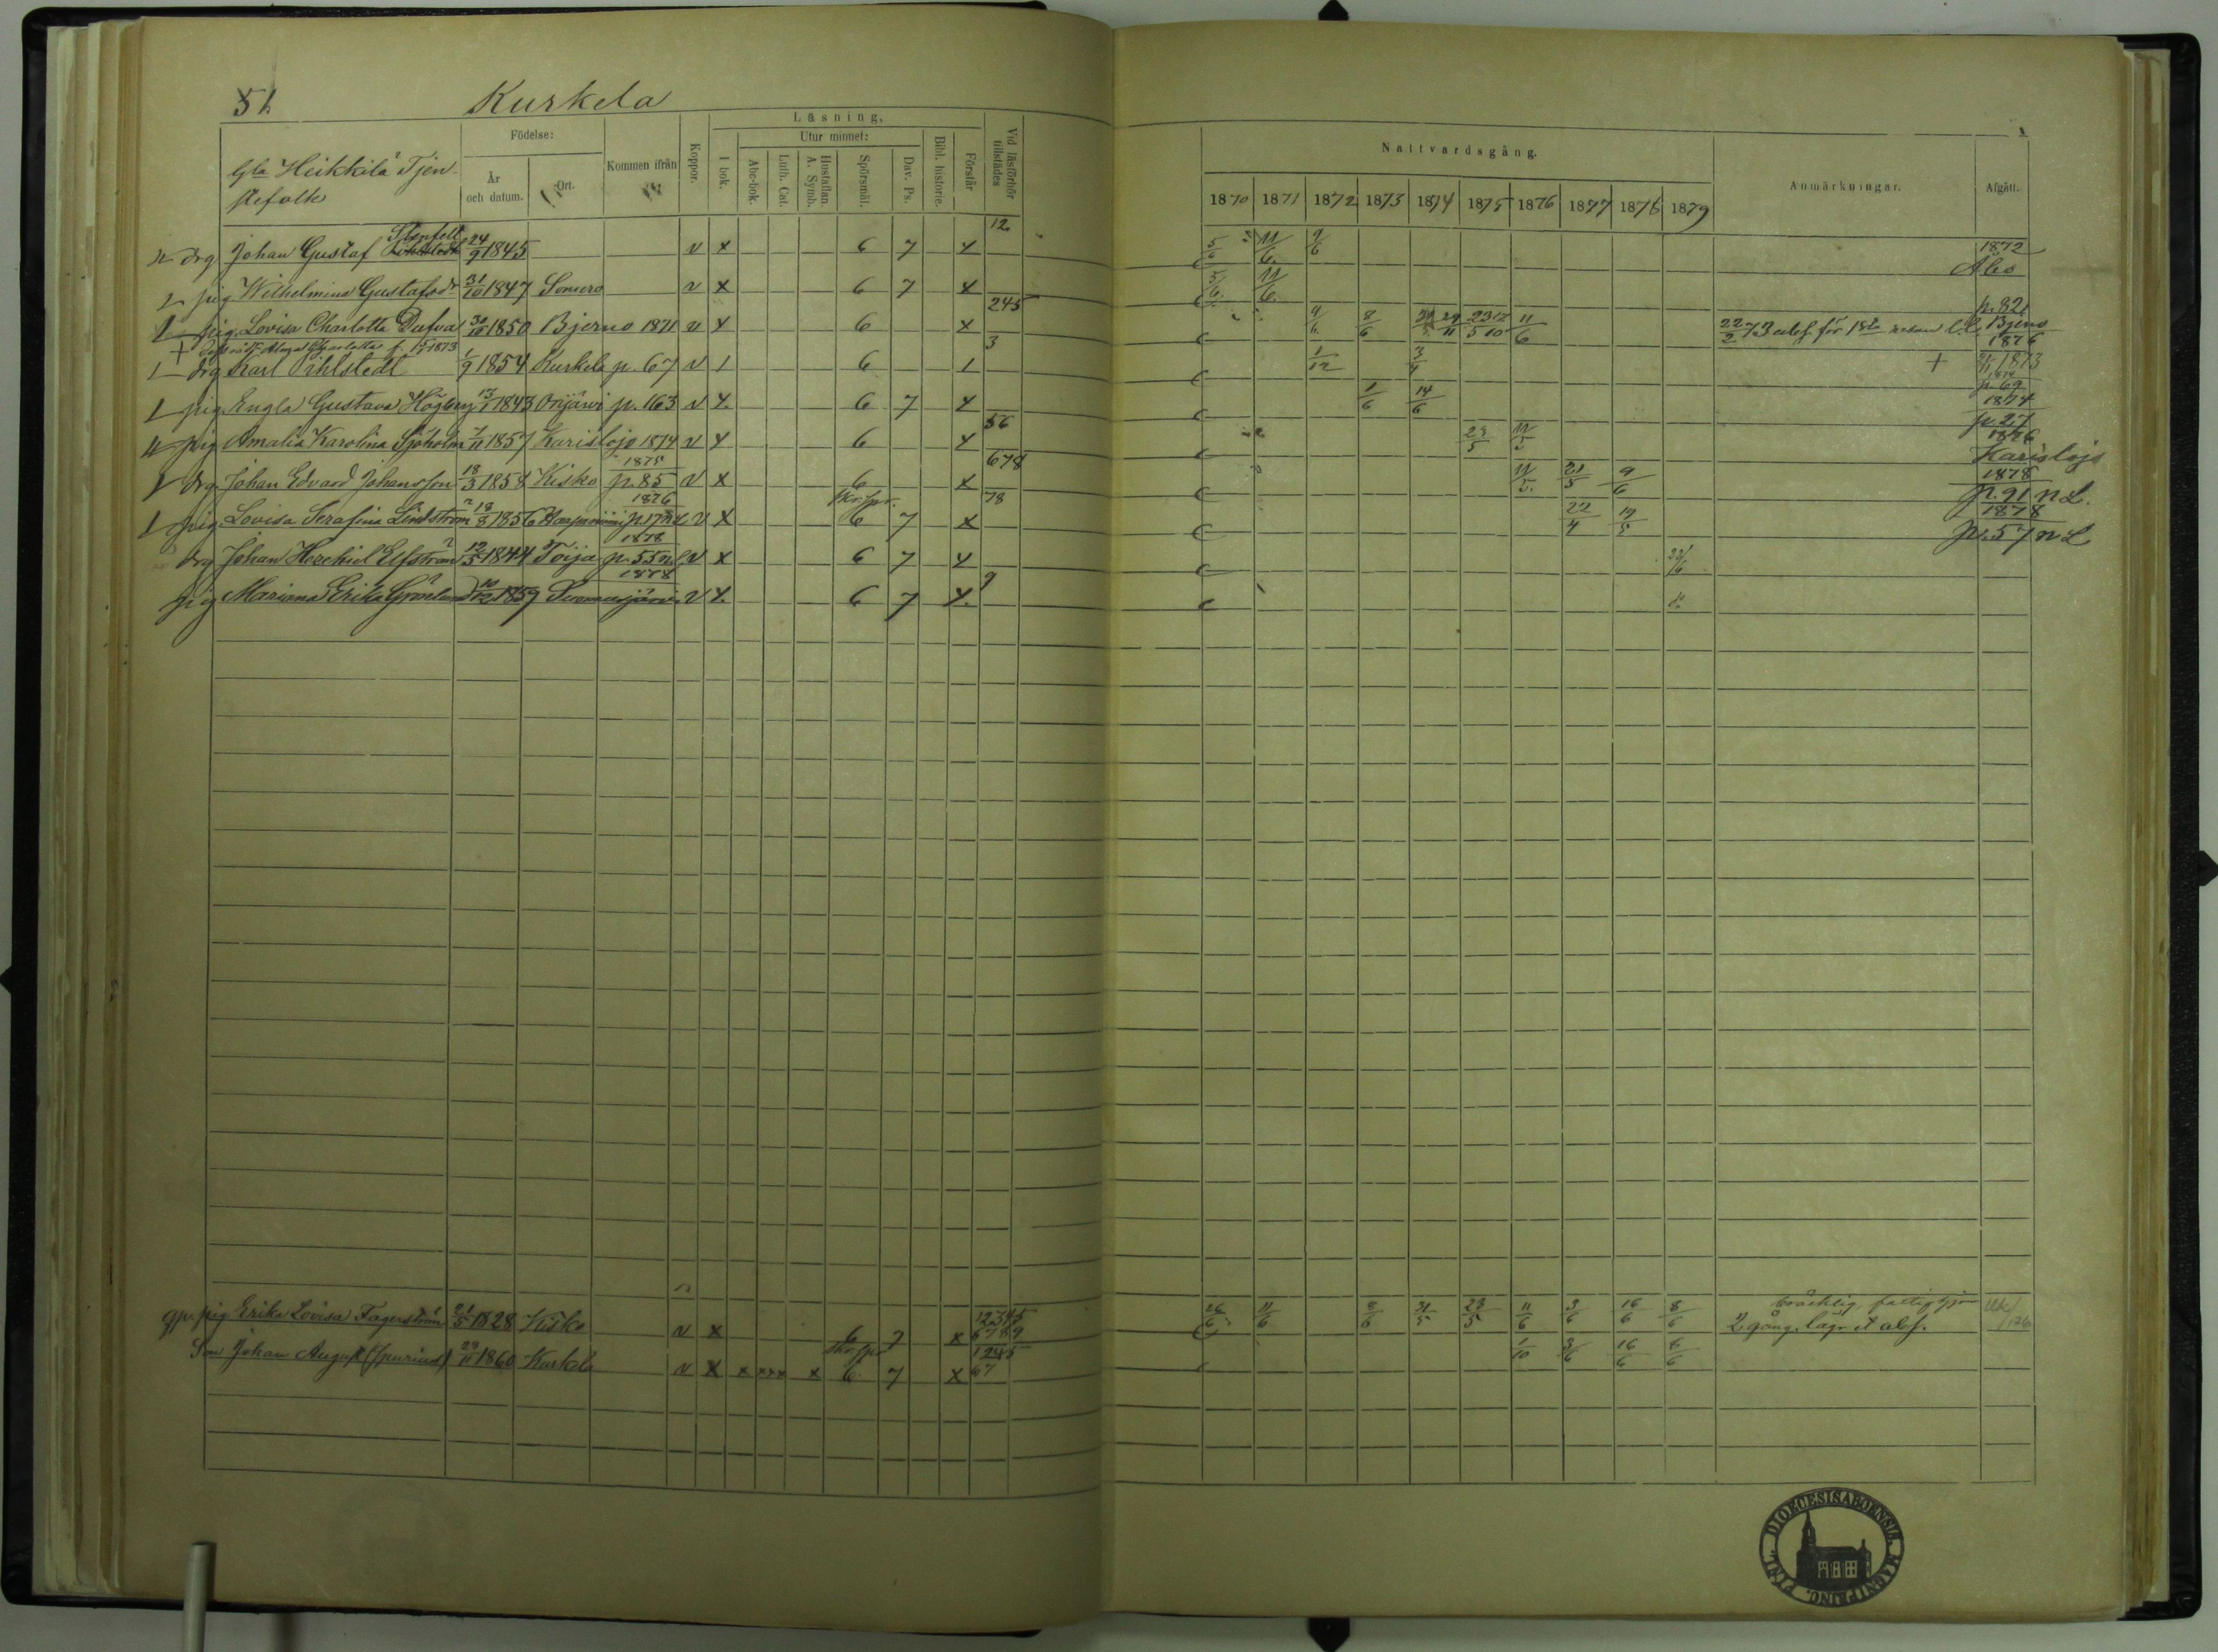 51
Kurkela
Gla Heikkilä Tjen-
stefolk
Födelse:
År
och datum.
Ort.
Kommen ifrån
Koppor.
Läsning.
I bok.
Utur minnet:
Abc-bok.
Luth. Cat.
Hustaflan.
A. Symb.
Spörsmål.
Dav. Ps.
Bibl. historie.
Förstår
Vid läsförhör
tillstädes
Nattvardsgång.
1870 1871 1872 1873 1874 1875 1876 1877 1878 1879
Anmärkningar.
Afgått.
drg Johan Gustaf Stenfelt 24/9 1845 v x 6 7 x 12 5/6 11/6 9/6 1872 Åbo
pig Wilhelmina Gustafsdr 31/10 1847 Somero v x 6 7 x 5/6 11/6 p. 82
pig Lovisa Charlotta Dufva 30/10 1850 Bjerno 1871 v x 6 x 245 9/6 8/6 11/6 Bjerno 1876
drg Karl Öhlstedt 1/9 1854 Kurkela p. 67 v 1 6 1 3 1/12 1874 p. 69
pig Engla Gustava Högberg 13/1 1843 Orijärvi p. 163 v x 6 7 x 1/6 14/6 1874 p. 27
pig Amalia Karolina Sjöholm 7/11 1857 Karislojo 1874 v x 6 x 56 23/5 11/5 1876 Karislojo
drg Johan Edvard Johansson 18/3 1858 Kisko 1875 p. 85 v x 6 x 678 11/5 21/5 9/6 1878 p. 91 n L.
pig Lovisa Serafina Lindström 18/8 1856 1876 v x 6 7 x 78 22/4 19/5 1878 p. 57 n L
drg Johan Hezekiel Elfström 12/5 1844 Toija 1878 p. 55 n L v x 6 7 x 22/6
pig Marianna Erika Grönlund 10/12 1859 Suomusjärvi 1878 v x 6 7 x 9
pig Erika Lovisa Fagerström 21/5 1828 Kisko v x 6 7 x 12345 6789 26/6 11/6 8/6 31/5 23/5 11/6 3/6 16/6 8/6 bräcklig, fattighjon
2 gång. lägr. et abs.
Son Johan August (spurius) 29/11 1860 Kurkela v x x x x x x 6 7 x 1245 67 1/10 3/6 16/6 8/6
DIOECESIS ABOENSIS. MAGNI PRINC. FINL.